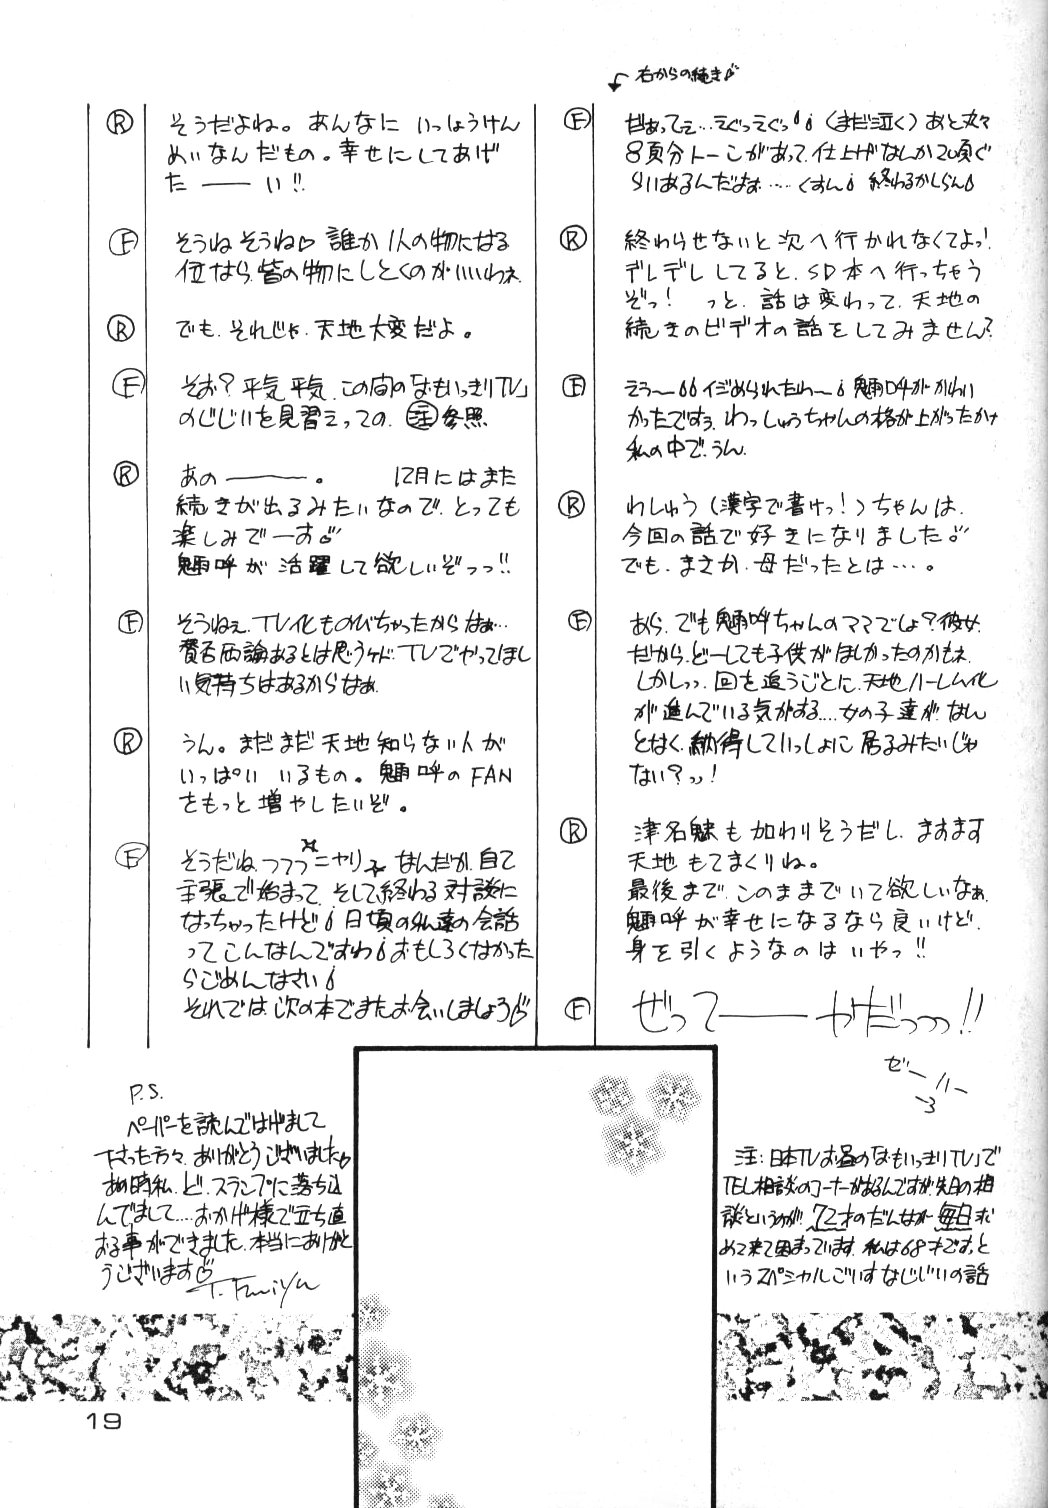 右からの続き♪
F だぁってぇ…えぐっえぐっ(まだ泣く)あと丸々
8頁分トーンがあって、仕上げなんか20頁ぐ
らいあるんだよね……くすん 終わるかしらん
R 終わらせないと次へ行かれなくてよっ!
デレデレしてると、SD本へ行っちゃう
ぞっ! っと、話は変わって、天地の
続きのビデオの話をしてみません?
F えう〜イジめられたわ〜 魎呼がかわい
かったですぅ、わっしゅうちゃんの格が上がったかナ
私の中で、うん。
R わしゅう(漢字で書けっ!)ちゃんは、
今回の話で好きになりました♪
でも、まさか、母だったとは…。
F あら、でも魎呼ちゃんのママでしょ?彼女。
だから、どーしても子供がほしかったのかもネ
しかしっっ、回を追うごとに、天地ハーレム化
が進んでいる気がする…女の子達が、なん
となく、納得していっしょに居るみたいじゃ
ない?っっ!
R 津名魅も加わりそうだし、ますます
天地もてまくりね。
最後まで、このままでいて欲しいなぁ、
魎呼が幸せになるなら良いけど、
身を引くようなのはいやっ!!
F ぜってーーやだっっっ!!
ゼーハー
R そうだよね。あんなにいっしょうけん
めいなんだもの。幸せにしてあげ
たーーい!!
F そうねそうね♡誰か1人の物になる
位なら、皆の物にしとくのがいいわネ
R でも、それじゃ、天地大変だよ。
F そお?平気平気、この間の「おもいっきりTV」
のじじいを見習えっての、注参照
R あのーーー。 12月にはまた
続きが出るみたいなので、とっても
楽しみでーす♪
魎呼が活躍して欲しいぞっっ!!
F そうねぇ、TV化ものびちゃったからなぁ…
賛否両論あるとは思うケド、TVでやってほし
い気持ちはあるからなぁ
R うん。まだまだ天地知らない人が
いっぱいいるもの。魎呼のFAN
をもっと増やしたいぞ。
F そうだね、フフフ ニヤリ なんだか、自己
主張で始まって、そして終わる対談に
なっちゃったけど 日頃の私達の会話
ってこんなんですわ おもしろくなかった
らごめんなさい
それでは、次の本でまたお会いしましょう
P.S.
ペーパーを読んではげまして
下さった方々、ありがとうございました♡
あの時私、ど、スランプに落ち込
んでまして…おかげ様で立ち直
おる事ができました、本当にありがと
うございます
T.Fumiya
注:日本TVお昼の「おもいっきりTV」で
TEL相談のコーナーがあるんですが、先日の相
談というのが、72才のだんなが毎日求
めて来て困まっています、私は68才です、と
いうスペシャルごいすなじじいの話
19